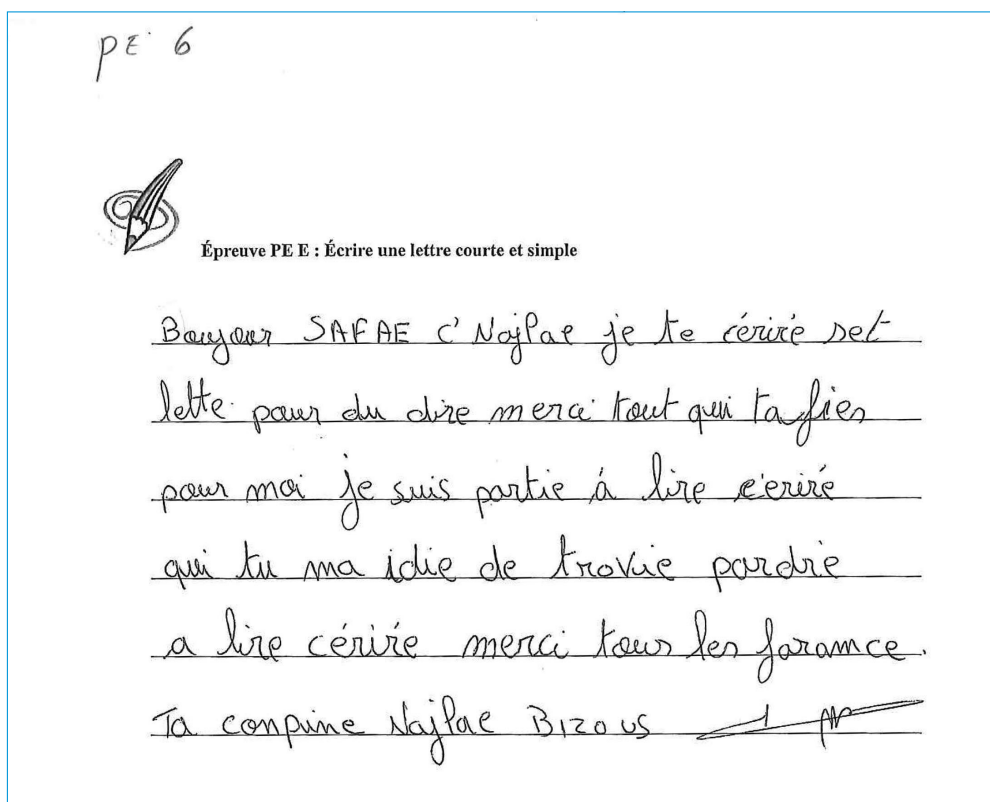 PE 6
Épreuve PE E : Écrire une lettre courte et simple
Boujour SAFAE C' Najlae je te cérirè set
lette pour du dire merci tout qui ta fien
pour moi je suis partie à lire c'erirè
qui tu ma idie de trovie pardrie
a lire cérivie merci tous les faramce.
Ta conpine Najlae Bizous